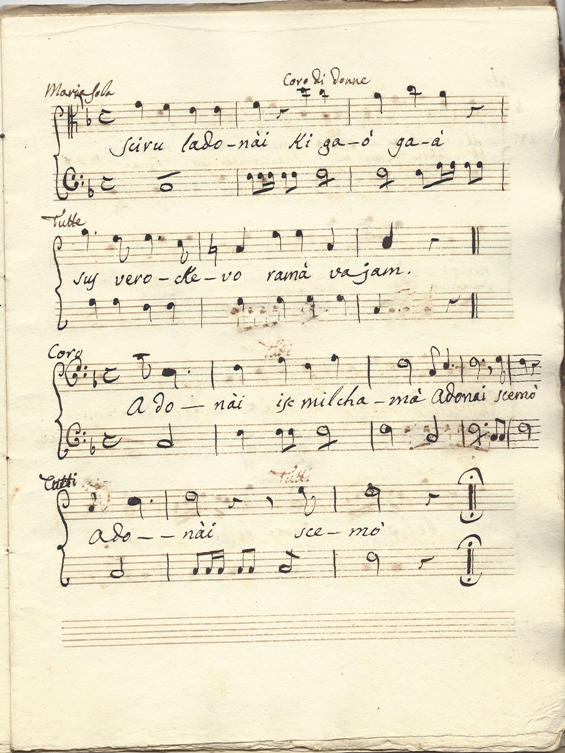 Maria sola
Coro di donne
Sciru lado-nài Ki ga-ò ga-à
Tutte
sus vero-cke-vo ramà vajam.
Coro
Tutti
Ado-nài isc milcha-mà Adonài scemò
Tutti
Tutti
Ado--nài sce-mò